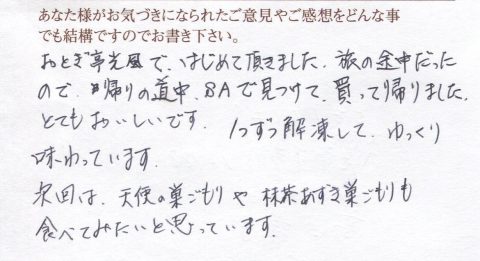 あなた様がお気づきになられたご意見やご感想をどんな事
でも結構ですのでお書き下さい。
おとぎ亭光風で、はじめて頂きました。旅の途中だった
ので、帰りの道中、SAで見つけて、買って帰りました。
とてもおいしいです。1つずつ解凍して、ゆっくり
味わっています。
次回は、天使の巣ごもりや抹茶あずき巣ごもりも
食べてみたいと思っています。